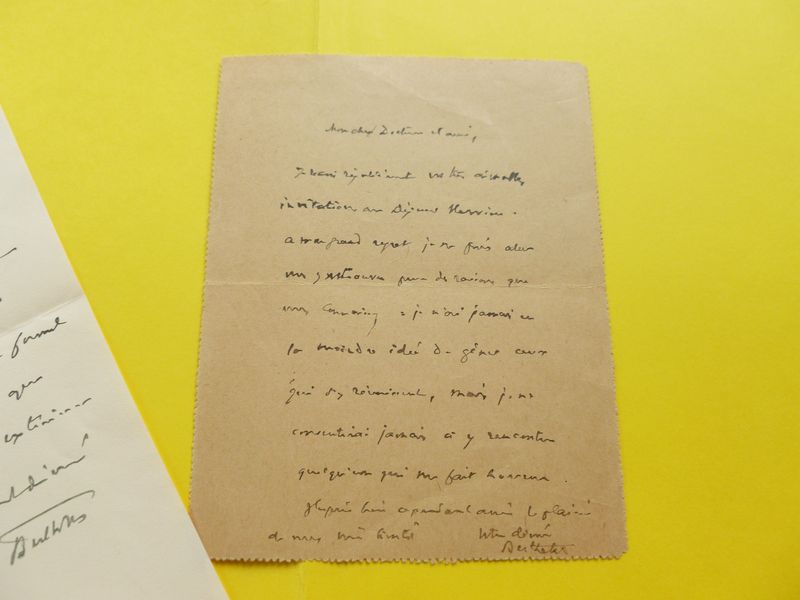 Mon cher Docteur et ami,
Je reçois régulièrement votre très aimable
invitation au Déjeuner
à mon grand regret je ne puis aller
m'y retrouver pour des raisons que
vous connaissez : je n'ai jamais eu
la moindre idée de gêner ceux
qui s'y réunissent, mais je ne
consentirai jamais à y rencontrer
quelqu'un qui me fait horreur.
J'espère bien cependant avoir le plaisir
de vous voir bientôt Votre dévoué
Berthelot
formel
que
dévoué
Berthelot